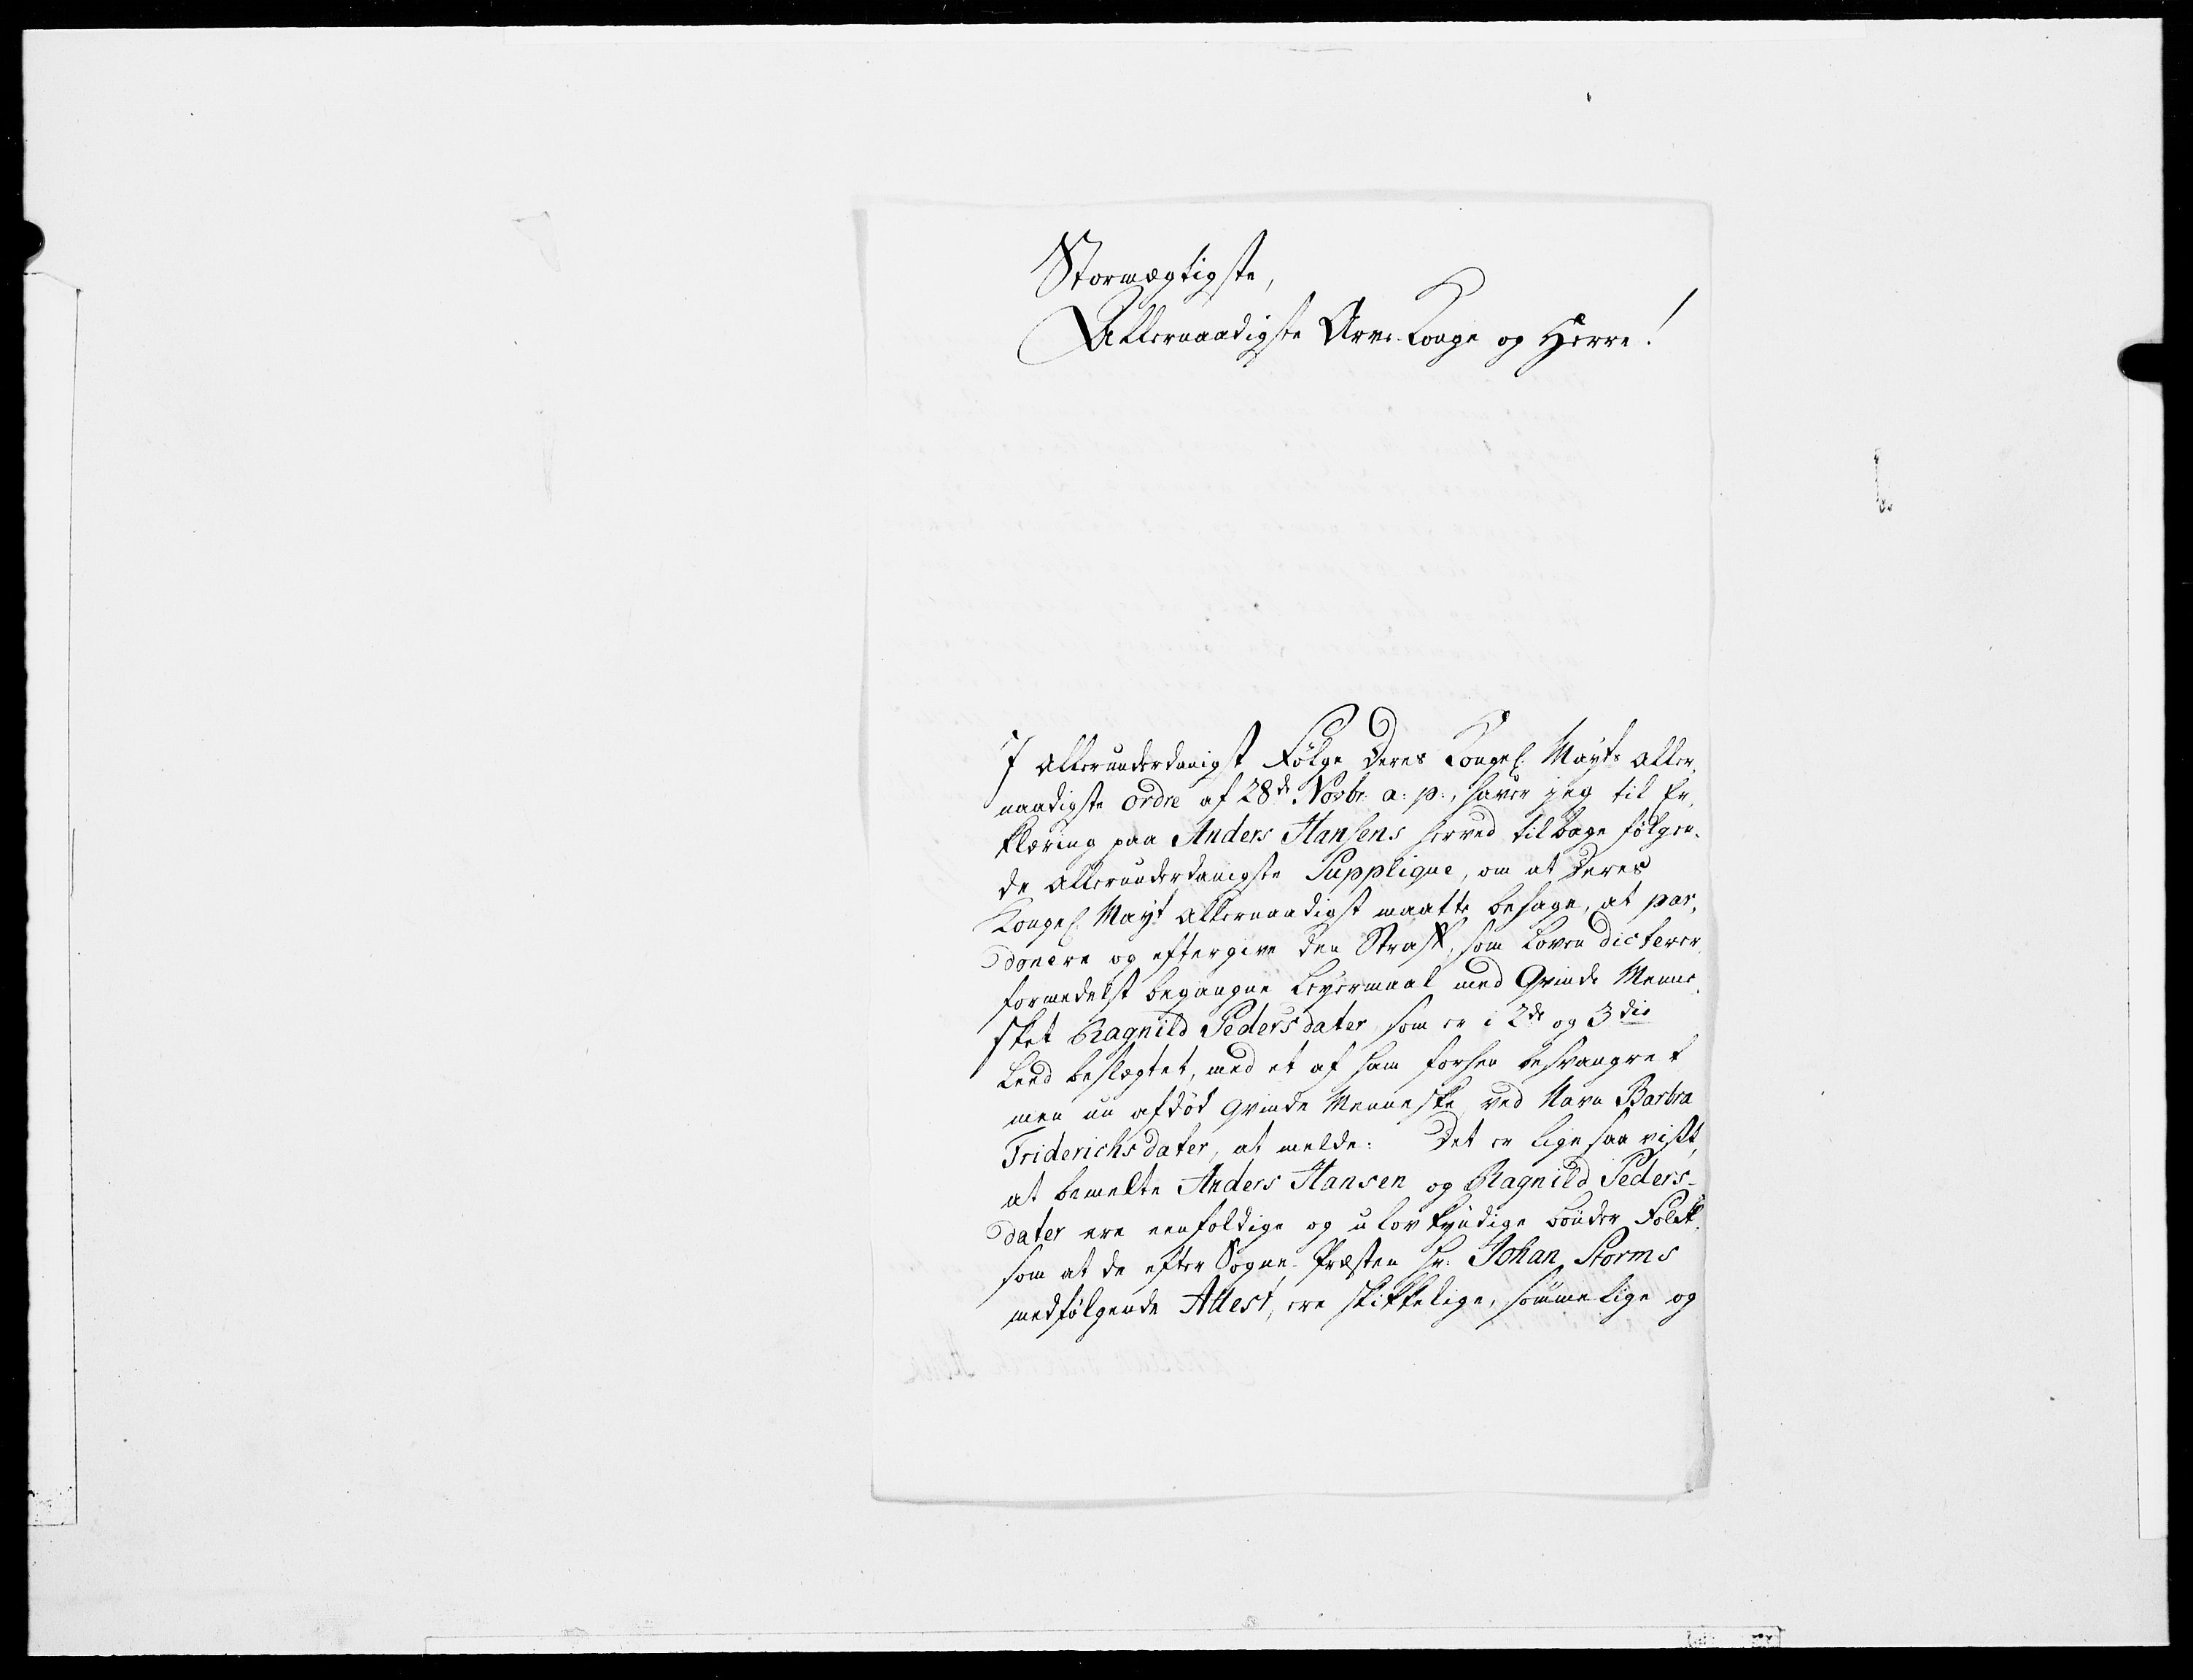 Stormægtigste,
Allernaadigste Arve-Konge og Herre!
I allerunderdanigst Følge Deres Kongel: Mayts aller-
naadigste ordre af 28de Novbr: a: p:, haver jeg til Er-
klæring paa Anders Hansens herved tilbage følgen-
de allerunderdanigste Supplique, om at Deres
Kongel: Mayt allernaadigst maatte behage, at par-
donere og eftergive den Straff, som Loven dicterer
formedelst begangne Leyermaal med Qvinde Menne-
sket Ragnild Pedersdater som er i 2de og 3die
Leed beslægtet, med et af ham forhen besvangret
men nu afdød Qvinde Menneske ved Navn Barbra
Friderichsdater, at melde: Det er lige saa vist,
at bemelte Anders Hansen og Ragnild Peders-
dater ere eenfoldige og ulovkyndige bønder Folk
som at de efter Sogne-Præsten Hr: Johan Storms
medfølgende Attest, ere skikkelige, sømmelige og